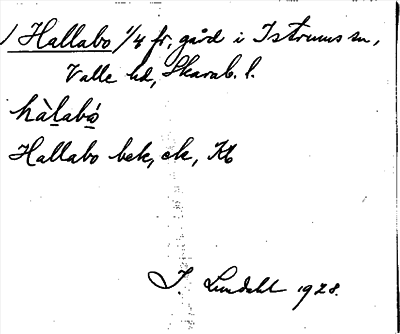 Hallabo 1/4 fr, gård i Istrums sn,
Valle hd, Skarab. l.
hàlabó
Hallabo bek, ek, Kb
I. Lundahl 1928.